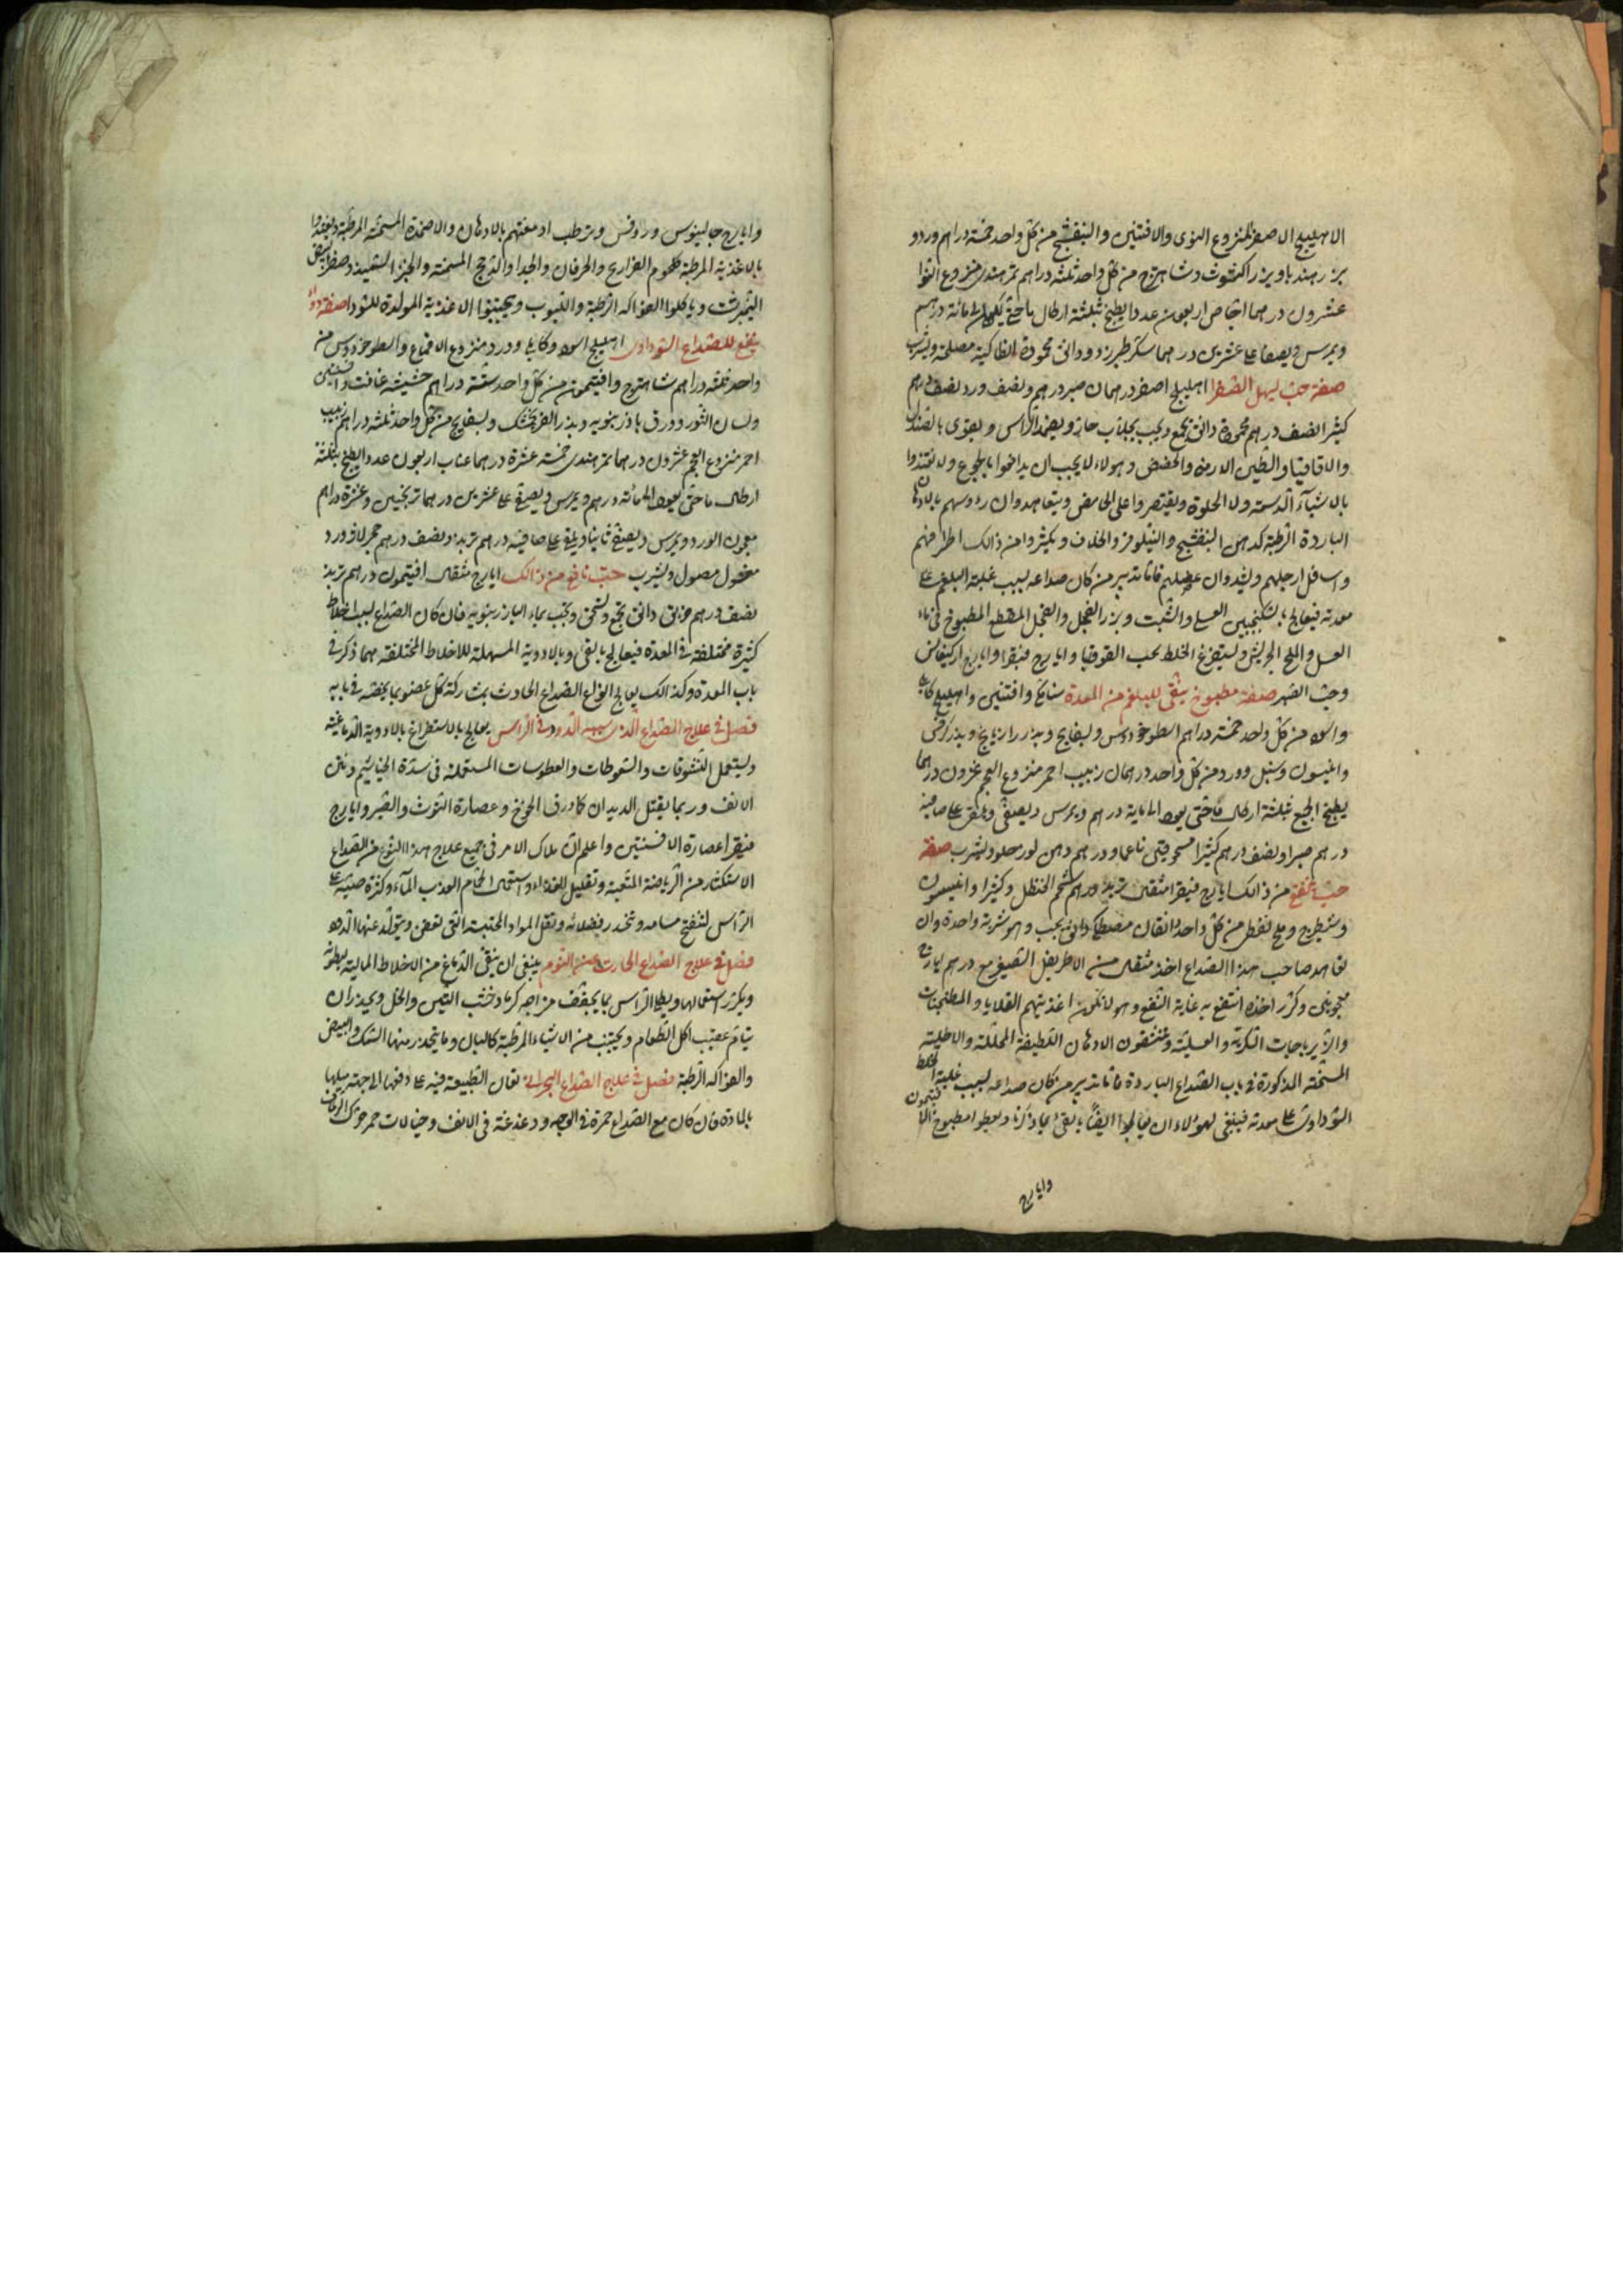 الاهليلج الاصفر المنزوع النوى والافسنتين والبنفسج من كل واحد خمسة دراهم ورد و
بزر هندبا وبزر اكشوث وشاهترج من كل واحد ثلثة دراهم تمر هندى منزوع النوا
عشرون درهما اجاص اربعون عددا يطبخ بثلثة ارطال ما حتى يعود الى مائة درهم
ويمرس ويصفا على عشرين درهما سكر طبرزد ودانق محمودة انطاكية مصلحة ويشرب
صفة حب يسهل الصفرا اهليلج اصفر درهمان صبر درهم ونصف ورد نصف درهم
كثيرا نصف درهم محمودة دانق يجمع ويحبب بجلاب حار ويضمد الراس ويقوى بالصندل
والاقاقيا والطين الارمنى والحضض وهولاء لا يجب ان يدافعوا بالجوع ولا يغتذوا
بالاشيآء الدسمة ولا الحلوة ويقتصروا على الحامض ويتعاهدوان رءوسهم بالادهان
الباردة الرطبة كدهن البنفسج والنيلوفر والخلاف ويكثروا من ذالك اطرافهم
واسافل ارجلهم ويشدوان عضلهم فاما تدبير من كان صداعه بسبب غلبة البلغم على
معدته فيعالج بالسكنجبين العسلى والشبت وبزر الفجل والفجل المقطع المطبوخ فى ماء
العسل والملح الجريش ويستفرغ الخلط بحب القوقيا وايارج فيقرا وايارج اركيغانس
وحب الصبر صفة مطبوخ ينقى البلغم من المعدة سنا مكى وافسنتين واهليلج كابلى
واسود من كل واحد خمسة دراهم اسطوخودوس وبسفايج وبذر رازيانج وبذر كرفس
وانيسون وسنبل وورد من كل واحد درهمان زبيب احمر منزوع العجم عشرون درهما
يطبخ الجميع بثلثة ارطال ما حتى يعود الى ماية درهم ويمرس ويصفى ويلقى على صافيه
درهم صبرا ونصف درهم كثيرا مسحوقتى ناعما ودرهم دهن لوز حلو ويشرب صفة
حب ينفع من ذالك ايارج فيقرا مثقال تربذ درهم شحم الحنظل وكثيرا وانيسون
وشيطرج وملح نفطى من كل واحد دانقان مصطكى دانق يحبب وهو شربة واحدة وان
تعاهد صاحب هذا الصداع اخذ مثقال من الاطريفل الصغير مع درهم ايارج
معجونين وكرر اخذه انتفع به غاية النفع وهولا تكون اغذيتهم القلايا والمطجنات
والزيرباجات السكرية والعسلية ويتنشقون الادهان اللطيفة المحللة والاطلية
المسخنة المذكورة فى باب الصداع الباردة فاما تدبير من كان صداعه بسبب غلبة الخلط
السوداوى على معدته فينبغى لهولاء ان يعالجوا ايضا بالقى بما ذكرنا ويعطوا مطبوخ الافتيمون
وايارج
وايارج جالينوس وروفس وترطب ادمغتهم بالادهان والاضمدة المسخنة المرطبة ويغذوا
بالاغذية المرطبة كلحوم الفراريج والخرفان والجدا والدجج المسمنة والخبز السميذ وصفرة البيض
النيمبرشت وياكلوا الفواكه الرطبة والقبوب ويجتنبوا الاغذية المولدة للسودا صفة دواء
ينفع للصداع السوداوى اهليلج اسود وكابلى وورد منزوع الاقماع واسطوخودوس من
واحد ثلثة دراهم شاهترج وافتيمون من كل واحد ستة دراهم حشيشة غافت وافسنتين
ولسان الثور وورق باذرنبويه وبذر الفرنجمشك وبسفايج من كل واحد ثلثة دراهم زبيب
احمر منزوع العجم عشرون درهما تمر هندى خمسة عشرة درهما عناب اربعون عددا يطبخ بثلثة
ارطال ما حتى يعود الى مائة درهم ويمرس ويصفى على عشرين درهما ترنجبين وعشرة دراهم
معجون الورد ويمرس ويصفى ثانيا ويلقى على صافيه درهم تربد ونصف درهم حجر لازورد
مغسول مصول ويشرب حب نافع من ذالك ايارج مثقال افتيمون درهم تربد
نصف درهم خربق دانق يجمع ويسحق ويحبب بماء الباذرنبويه فان كان الصداع لسبب اخلاط
كثيرة مختلفة فى المعدة فيعالج بالقى وبالادوية المسهلة للاخلاط المختلفة مما ذكر فى
باب المعدة وكذالك يعالج انواع الصداع الحادث بمشاركة كل عضو بما يخصه فى بابه
فصل فى علاج الصداع الذى سببه الدود فى الراس يعالج بالاستفراغ بالادوية الدماغية
ويستعمل النشوقات والسعوطات والعطوسات المستعملة فى سدة الخياشيم ونتن
الانف وربما يقتل الديدان كاورق الخوخ وعصارة التوث والصبر وايارج
فيقرا عصارة الافسنتين واعلم ان ملاك الامر فى جميع علاج هذا النوع من الصداع
الاستكثار من الرياضة المتعبة وتقليل الغذاء واستعمال الحمام العذب المآء وكثرة صبه على
الراس لتنفتح مسامه وتخدر فضلاته وتقل المواد المحتبسة التى تعفن ويتولد عنها الدود
فصل فى علاج الصداع الحادث عن النوم ينبغى ان ينقى الدماغ من الاخلاط المالية لبطونه
ويكرر استعمالها ويطلى الراس بما يجفف من اجر كرماد خشب التين والخل ويحذر ان
ينام عقيب اكل الطعام ويجتنب من الاشياء المرطبة كالبال وما يتخذ منها السمك والبيض
والفواكه الرطبة فصل فى علاج الصداع البحرانى تعان الطبيعة فيه على دفعها الى جهة ميلها
بالمادة فان كان مع الصداع حمرة فى الوجه ودغدغة فى الانف وخيالات حمر حرك الرعاف